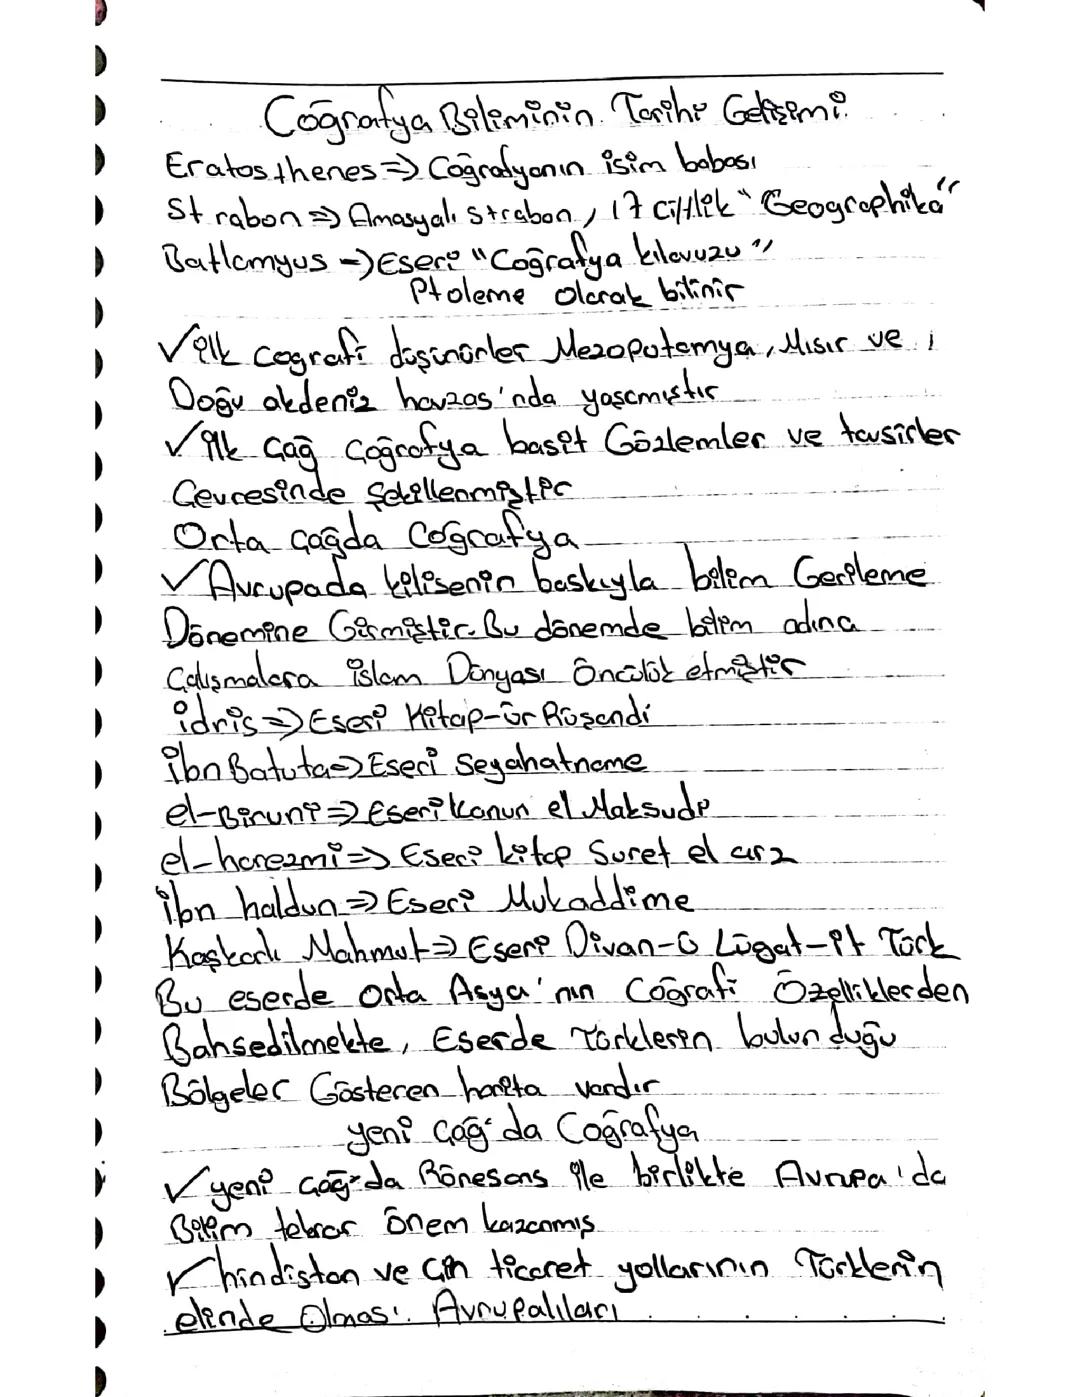 Coğrafya Biliminin Tarihi Gelişimi
Eratosthenes => Coğrafyanın isim babası
Strabon => Amasyalı strabon, 17 ciltlik "Geographika"
Batlamyus -> Eseri "Coğrafya kılavuzu"
Ptoleme olarak bilinir
✓ ilk cografi düşünürler Mezopotamya, Mısır ve
Doğu akdeniz havzas'nda yaşamıştır
✓ ilk Çağ Coğrafya basit Gözlemler ve tavsirler
Çevresinde şekillenmiştir
Orta Çağda Coğrafya
✓ Avrupada kilisenin baskıyla bilim Gerileme
Dönemine Girmiştir. Bu dönemde bilim adına
Çalışmalara islam Dünyası Öncülük etmiştir
idris => Eseri Kitap-ür Rüsendi
ibn Batuta => Eseri Seyahatname
el-Biruni => Eseri Kanun el Maksudi
el-harezmi => Eseri kitap Suret el arz
ibn haldun => Eseri Mukaddime
Kaşkarlı Mahmut => Eseri Divan-ü Lügat-it Türk
Bu eserde Orta Asya'nın Coğrafi Özelliklerden
Bahsedilmekte, Eserde Türklerin bulunduğu
Bölgeler Gösteren harita vardır
yeni Çağ'da Coğrafya
✓ yeni Çağ'da Rönesans ile birlikte Avrupa'da
Bilim tekrar önem kazanmış
✓ hindistan ve Çin ticaret yollarının Türklerin
elinde Olması Avrupalıları